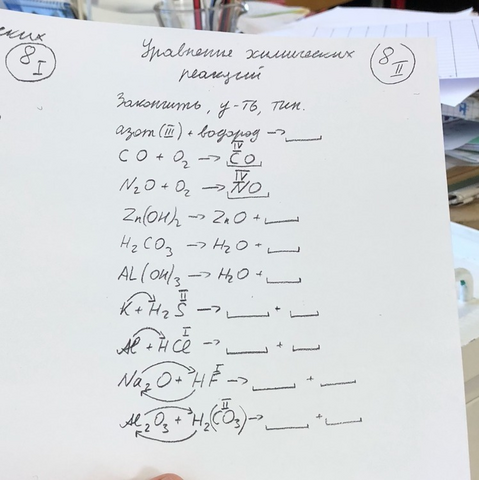 ских
8 I
Уравнение химических
реакций
8 II
Закончить, у-ть, тип.
азот (III) + водород → ___
CO + O₂ → C^IV O
N₂O + O₂ → N^IV O
Zn(OH)₂ → ZnO + ___
H₂CO₃ → H₂O + ___
AL(OH)₃ → H₂O + ___
K + H₂S^II → ___ + ___
Al + HCl^I → ___ + ___
Na₂O + HF^I → ___ + ___
Al₂O₃ + H₂(CO₃)^II → ___ + ___